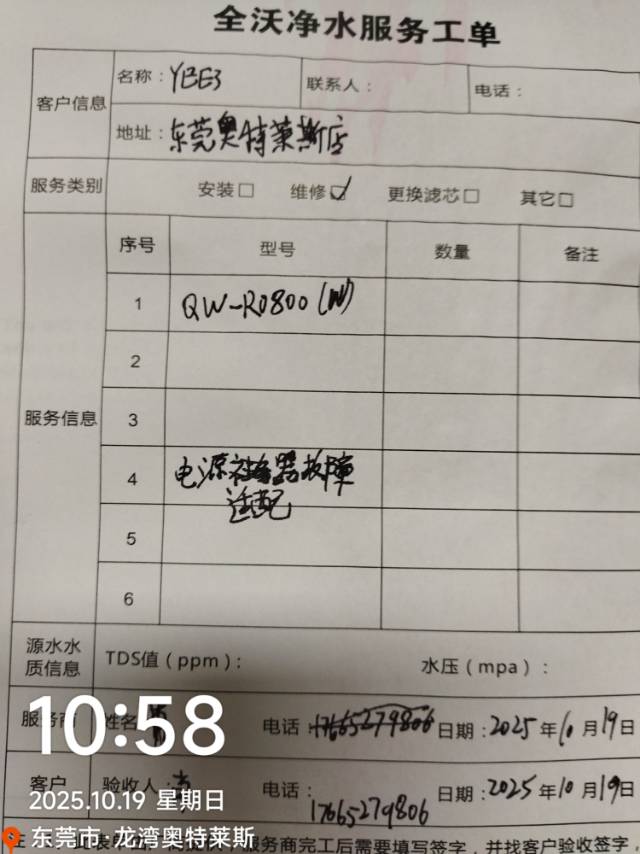 全沃净水服务工单
客户信息
名称：YBE3
联系人：
电话：
地址：东莞奥特莱斯店
服务类别
安装□ 维修☑ 更换滤芯□ 其它□
服务信息
序号 型号 数量 备注
1 QW-R0800(W)
2
3
4 电源器故障
适配
5
6
源水水质信息
TDS值（ppm）： 水压（mpa）：
服务商 姓名 电话：17665279806 日期：2025年10月19日
客户 验收人： 电话：17665279806 日期：2025年10月19日
10:58
2025.10.19 星期日
东莞市·龙湾奥特莱斯
服务商完工后需要填写签字，并找客户验收签字，